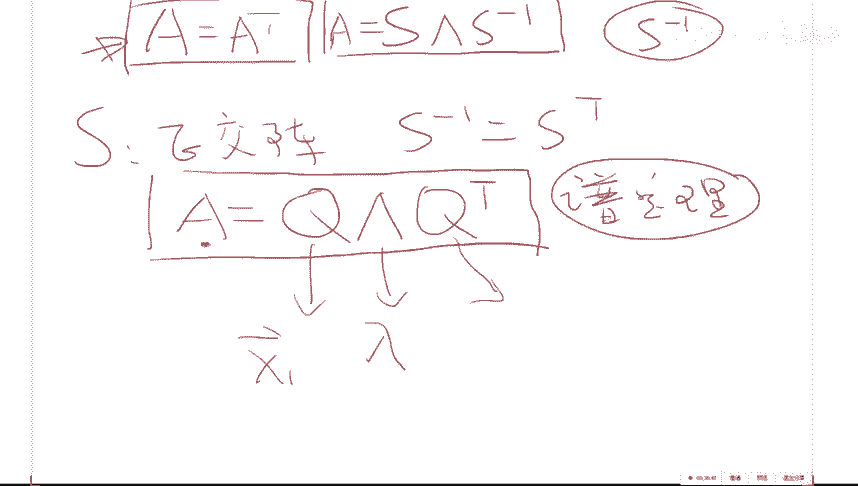 A = A^T A = S Λ S^{-1} S^{-1}
S: 正交阵 S^{-1} = S^T
A = Q Λ Q^T 谱定理
x₁ λ